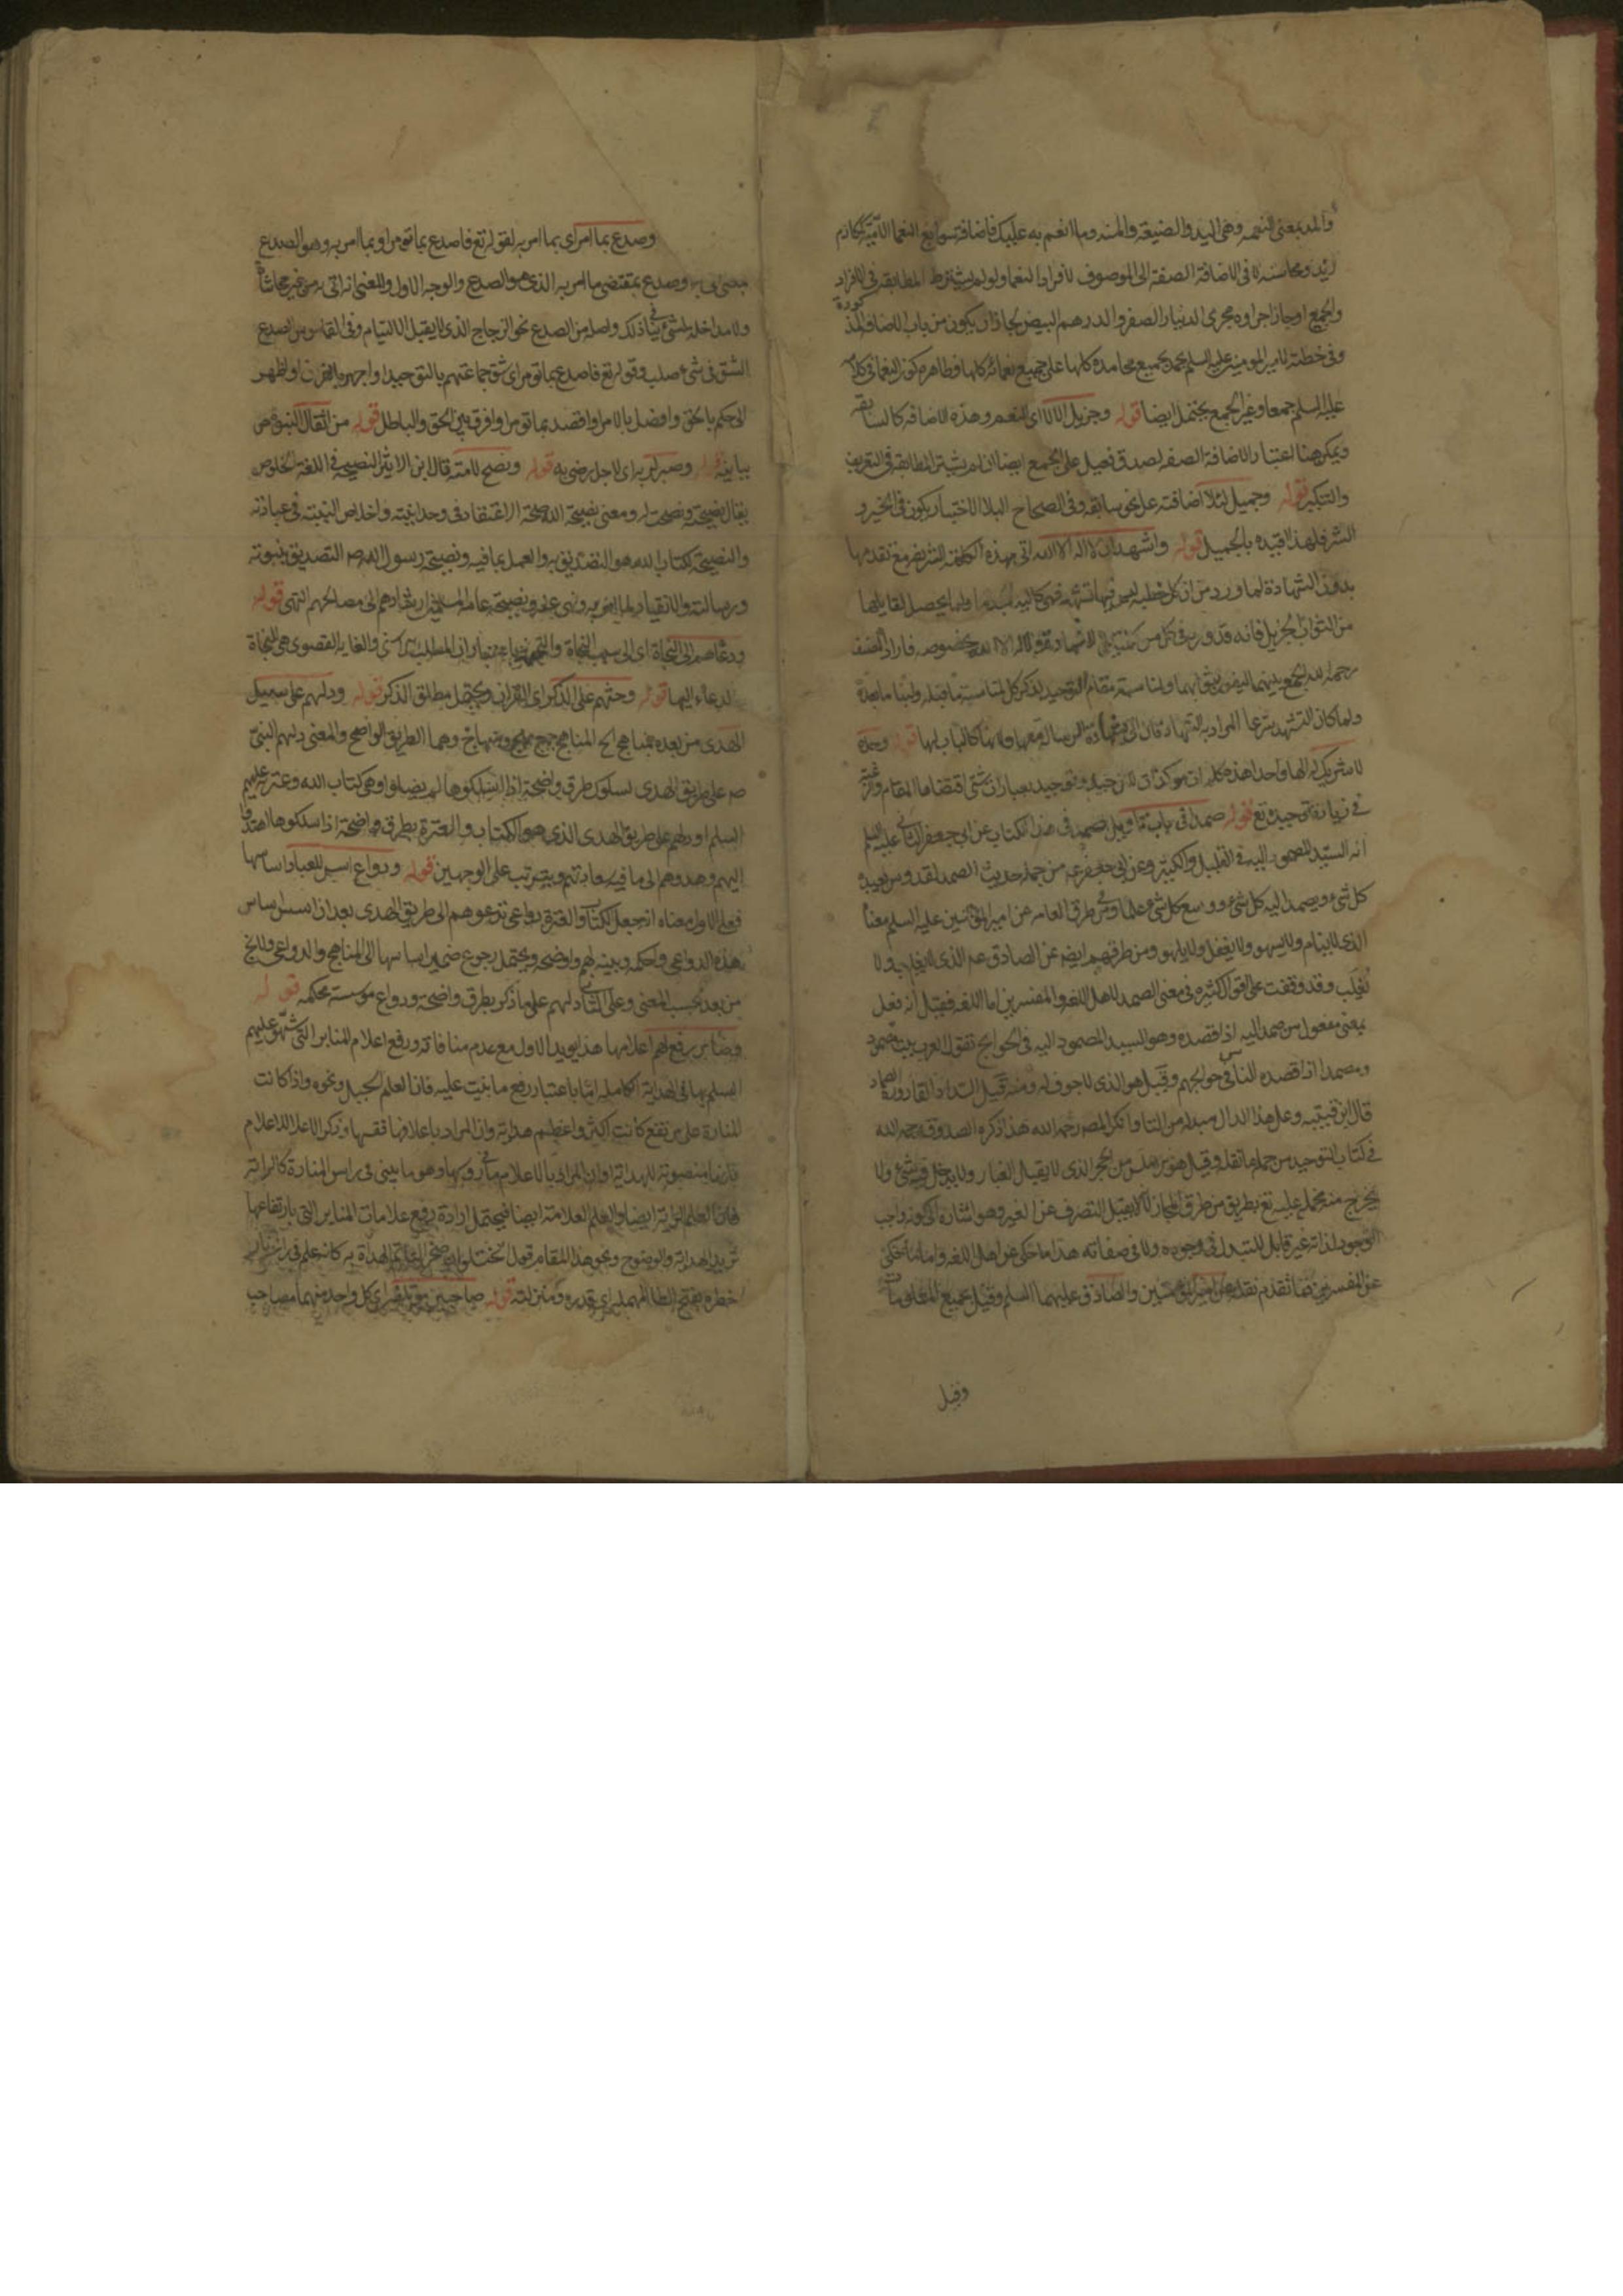 والمد بمعنى النعمه وهى اليد والصنيعة والمنه وما انعم به عليك فاضافة سوابغ النعما كمكارم
زيد ومحاسنه لا فى الاضافة الصفة الى الموصوف لافراد النعما ولو لم يشترط المطابقه فى الافراد
والجمع او جاز اجراوه مجرى الدنيار الصفر والدرهم البيض لجاز ان يكون من باب الاضافه المذكورة
وفى خطبة لامير المومنين عليه السلم نحمده بجميع محامده كلها على جميع نعمائه كلها وظاهره كون النعما فى كلامه
عليه السلم جمعا وغير الجمع يحتمل ايضا قوله وجزيل الالاء اى النعم وهذه الاضافه كالسابقه
ويمكن هنا اعتبار الاضافة الصفه لصدق فعيل على الجمع ايضا ان لم يشترط المطابقه فى التعريف
والتنكير قوله وجميل البلاء اضافته على نحو سابقه وفى الصحاح البلاء الاختبار يكون فى الخير و
الشر فلهذا قيده بالجميل قوله واشهد ان لا اله الا الله اتى بهذه الكلمة الشريفه مع تقدمها
بدون الشهادة لما ورد من ان كل خطبه ليس فيها تشهد فهى كاليد الجذماء ولما يحصل لقائلها
من الثواب الجزيل فانه قد ورد فى كل من لا اله الا الله بخصوصه فاراد المصنف
رحمه الله الجمع بينهما ليفوز بثوابهما ولمناسبة مقام التوحيد لذكر كل لمناسبة ما قبله ولبنا ما بعده
ولما كان التشهد شرعا المراد به الشهادتان اتى بشهادة الرسالة معها ولانها كالباب لها قوله وحده
لا شريك له الها واحدا هذه كلها موكدات للتوحيد وتوحيد بعبارات شتى اقتضاها المقام والرغبة
فى زيادة توحيده تع قوله صمدا فى باب تاويل الصمد فى هذا الكتاب عن ابى جعفر الثانى عليه السلم
انه السيد المصمود اليه فى القليل والكثير وعن ابى جعفر ع من جملة حديث الصمد القدوس يعبده
كل شىء ويصمد اليه كل شىء ووسع كل شىء علما وفى طرق العامه عن امير المومنين عليه السلم معناه
الذى لا ينام ولا يسهو ولا يغفل ولا يلهو ومن طرقهم ايضا عن الصادق ع الذى لا يغلب ولا
يُغلَب وقد وقفت على اقوال كثيره فى معنى الصمد لاهل اللغه والمفسرين اما اللغه فقيل انه فعل
بمعنى مفعول من صمد اليه اذا قصده وهو السيد المصمود اليه فى الحوايج تقول العرب بيت مصمود
ومصمد اذا قصده الناس فى حوايجهم وقيل هو الذى لا جوف له ومنه قيل لسداد القارورة الصماد
قال ابن قتيبه وعلى هذا الدال مبدله من التاء وانكر المصه رحمه الله هذا ذكره الصدوق رحمه الله
فى كتاب التوحيد من جملة ما نقله وقيل هو الاملس من الحجر الذى لا يقبل الغبار ولا يدخل فيه شىء ولا
يخرج منه شىء عليه تع بطريق من طرق المجاز انه لا يقبل التصرف عن الغير وهو اشارة الى كونه واجب
الوجود لذاته غير قابل للتبدل فى وجوده ولا فى صفاته هذا ما حكى عن اهل اللغه واما ما حكى
عن المفسرين فما تقدم نقله عن امير المومنين والصادق عليهما السلم وقيل بجميع المعلومات
وقيل
وصدع بما امر اى بما امر به لقوله تع فاصدع بما تومر او بما امر به وهو الصدع
وصدع بمقتضى ما امر به الذى هو الصدع والوجه الاول والمعنى انه اتى به من غير محاشاة
ولا مداخلة لشىء ينافى ذلك واصله من الصدع نحو الزجاج الذى لا يقبل الالتيام وفى القاموس الصدع
الشق فى شىء صلب وقوله تع فاصدع بما تومر اى شق جماعتهم بالتوحيد او اجهر بالقران او اظهر
او احكم بالحق وافصل بالامر او اقصد بما تومر او افرق بين الحق والباطل قوله من اثقال النبوة من
بيانيه قوله وصبر لربه اى لاجل رضى به قوله ونصح لامته قال ابن الاثير النصيحه فى اللغه الخلوص
يقال نصحته ونصحت له ومعنى نصيحة الله صحة الاعتقاد فى وحدانيته واخلاص النية فى عبادته
والنصيحة لكتاب الله هو التصديق به والعمل بما فيه ونصيحة رسول الله ص التصديق بنبوته
ورسالته والانقياد لما امر به ونهى عنه ونصيحة عامة المسلمين ارشادهم الى مصالحهم انتهى قوله
ودعاهم الى النجاة اى الى سبب النجاة باعتبار ان المطلب والغايه القصوى هى النجاة
لدعاء اليها قوله وحثهم على الذكر اى القران ويحتمل مطلق الذكر قوله ودلهم على سبيل
الهدى من بعده بمناهج الخ المناهج جمع منهج ومنهاج وهما الطريق الواضح والمعنى دلهم النبى
ص على طريق الهدى لسلوك طرق واضحة اذا سلكوها لم يضلوا وهى كتاب الله وعترته عليهم
السلم او دلهم على طريق الهدى الذى هو الكتاب والعترة بطرق واضحة اذا سلكوها اهتدوا
اليهم وهدوهم الى ما فيه سعادتهم ويترتب على الوجهين قوله ودواع اسس للعباد اساسها
فعلى الاول معناه انه جعل لكتاب والعترة دواعى تدعوهم الى طريق الهدى بعد ان اسس اساس
هذه الدواعى واحكمه وبينه لهم واوضحه ويحتمل رجوع ضمير اساسها الى المناهج والدواعى
من بعد بحسب المعنى وعلى الثانى دلهم على ما ذكر بطرق واضحة ودواع موسسة محكمه قوله
ومنابر رفع لهم اعلامها هذا يويد الاول مع عدم منافاته ورفع اعلام المنابر التى شبهوا عليهم
السلم بها فى الهداية الكامله اما باعتبار رفع ما بنيت عليه فان العلم الجبل ونحوه واذا كانت
المنارة على مرتفع كانت اكثر واعظم هداية وان المراد باعلامها نفسها وذكر الاعلام
لانها منصوبة للهداية او ان المراد بالاعلام وهو ما يبنى فى راس المنارة كالراية
فان العلم الراية ايضا والعلم العلامة ايضا فيحتمل ارادة رفع علامات المنابر التى بارتفاعها
تزيد الهداية والوضوح ونحو هذا المقام قول الخنساء صخر لتاتم الهداة به كانه علم فى راسه نار
خطره بفتح الطاء المهملة اى قدره ومنزلته قوله صاحبين اى كل واحد منهما مصاحب